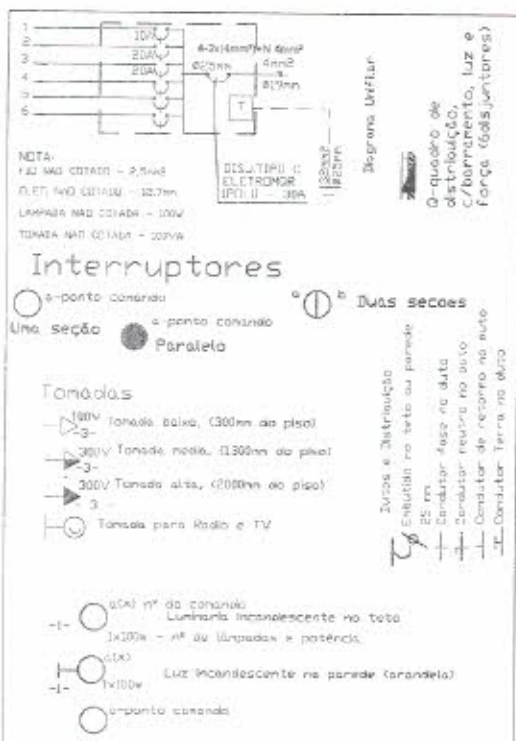 1
2
3
4
5
6
10A
20A
20A
4mm2
Ø19mm
T
Ø25mm
Diagrama Unifilar
Q-quadro de
distribuição,
c/barramento, luz e
força (6disjuntores)
NOTA:
FIO NAO COTADO - 2,5mm2
LAMPADA NAO COTADA - 100W
TOMADA NAO COTADA - 100VA
DISJ.TIPO C
ELETROMAR
30A
Interruptores
a-ponto comando
Uma seção
a-ponto comando
Paralelo
a b Duas secoes
Tomadas
-3-
Tomada baixa, (300mm do piso)
300V Tomada media, (1300mm do piso)
-3-
300V Tomada alta, (2000mm do piso)
- 3 -
Tomada para Radio e TV
Dutos e Distribuição
Embutido no teto ou parede
25 mm
Condutor fase no duto
Condutor neutro no duto
Condutor de retorno no duto
Condutor Terra no duto
-1- a(x) nº do comando
Luminaria incandescente no teto
1x100w - nº de lâmpadas e potência
a(x)
-1- 1x100w Luz incandescente na parede (arandela)
a-ponto comando